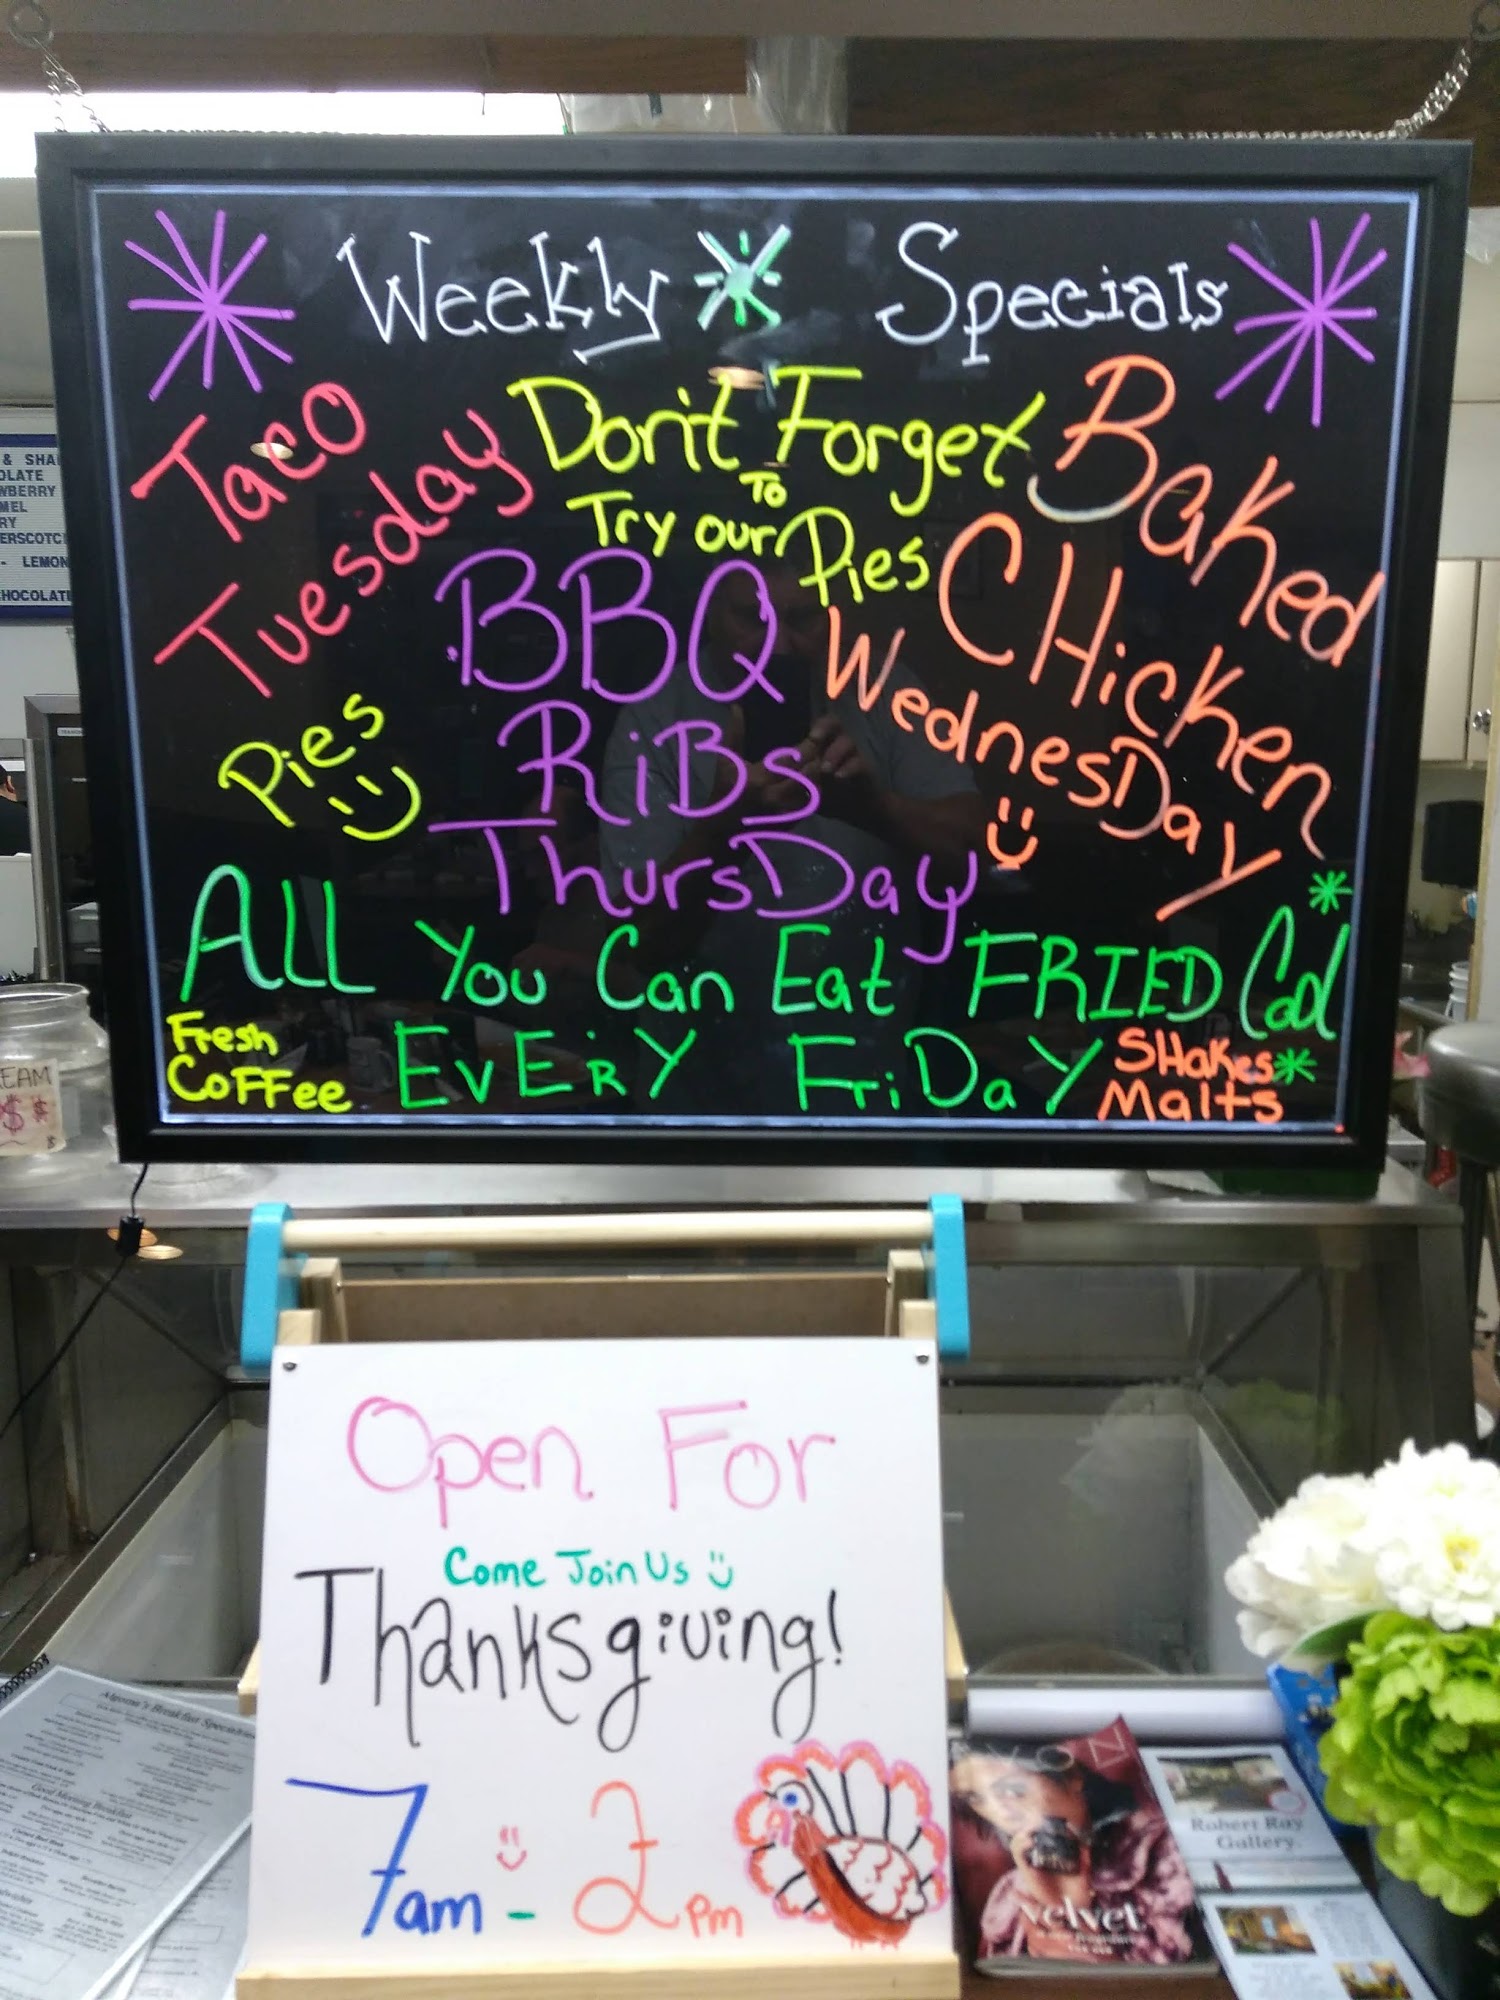 Weekly Specials
Taco
Tuesday
Don't Forget
To
Try our Pies
Baked
CHicken
WednesDay
BBQ
RiBs
ThursDay
Pies
ALL You Can Eat FRIED Cod
EvERY FriDaY
Fresh
CoFFee
SHakes
Malts
& SHA
OLATE
WBERRY
MEL
RY
ERSCOTC
- LEMON
HOCOLAT
EAM
$$
Open For
Come Join Us
Thanksgiving!
7am - 2pm
Algoma's Breakfast Special
Good Morning Breakfast
velvet
Robert Ray
Gallery